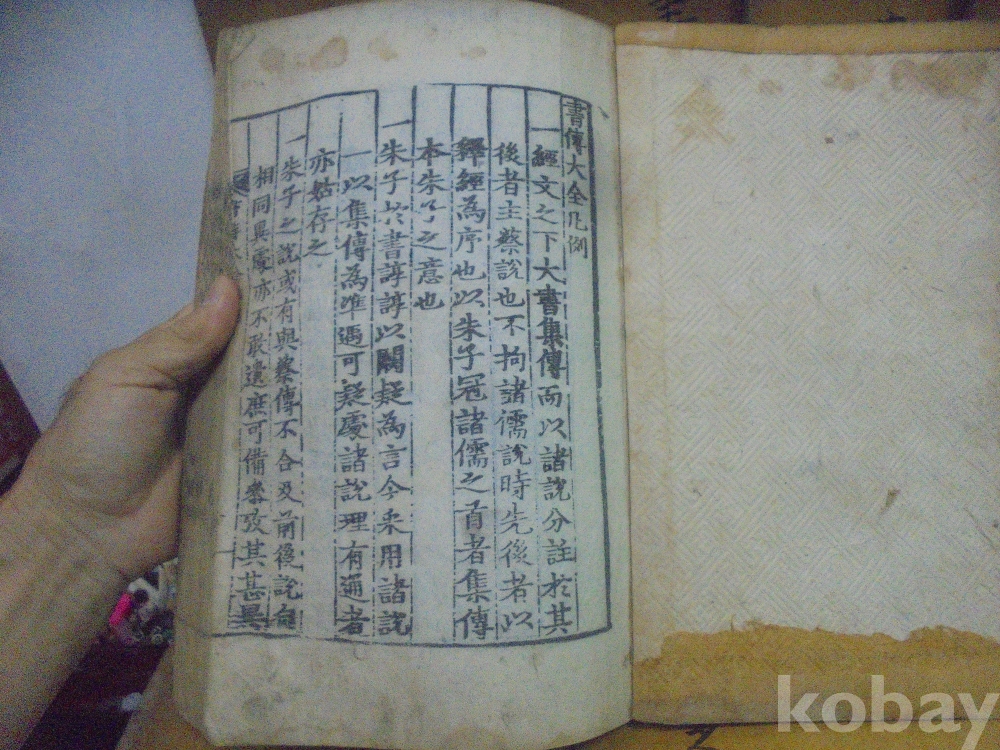 書傳大全凡例
一經文之下大書集傳而以諸說分註於其
後者主蔡說也不拘諸儒說時先後者以
釋經為序也以朱子冠諸儒之首者集傳
本朱子之意也
一朱子於書諄諄以闕疑為言今采用諸說
一以集傳為準遇可疑處諸說理有通者
亦姑存之
一朱子之說或有與蔡傳不合及前後說自
相同異處亦不敢遺庶可備參攷其甚異
kobay